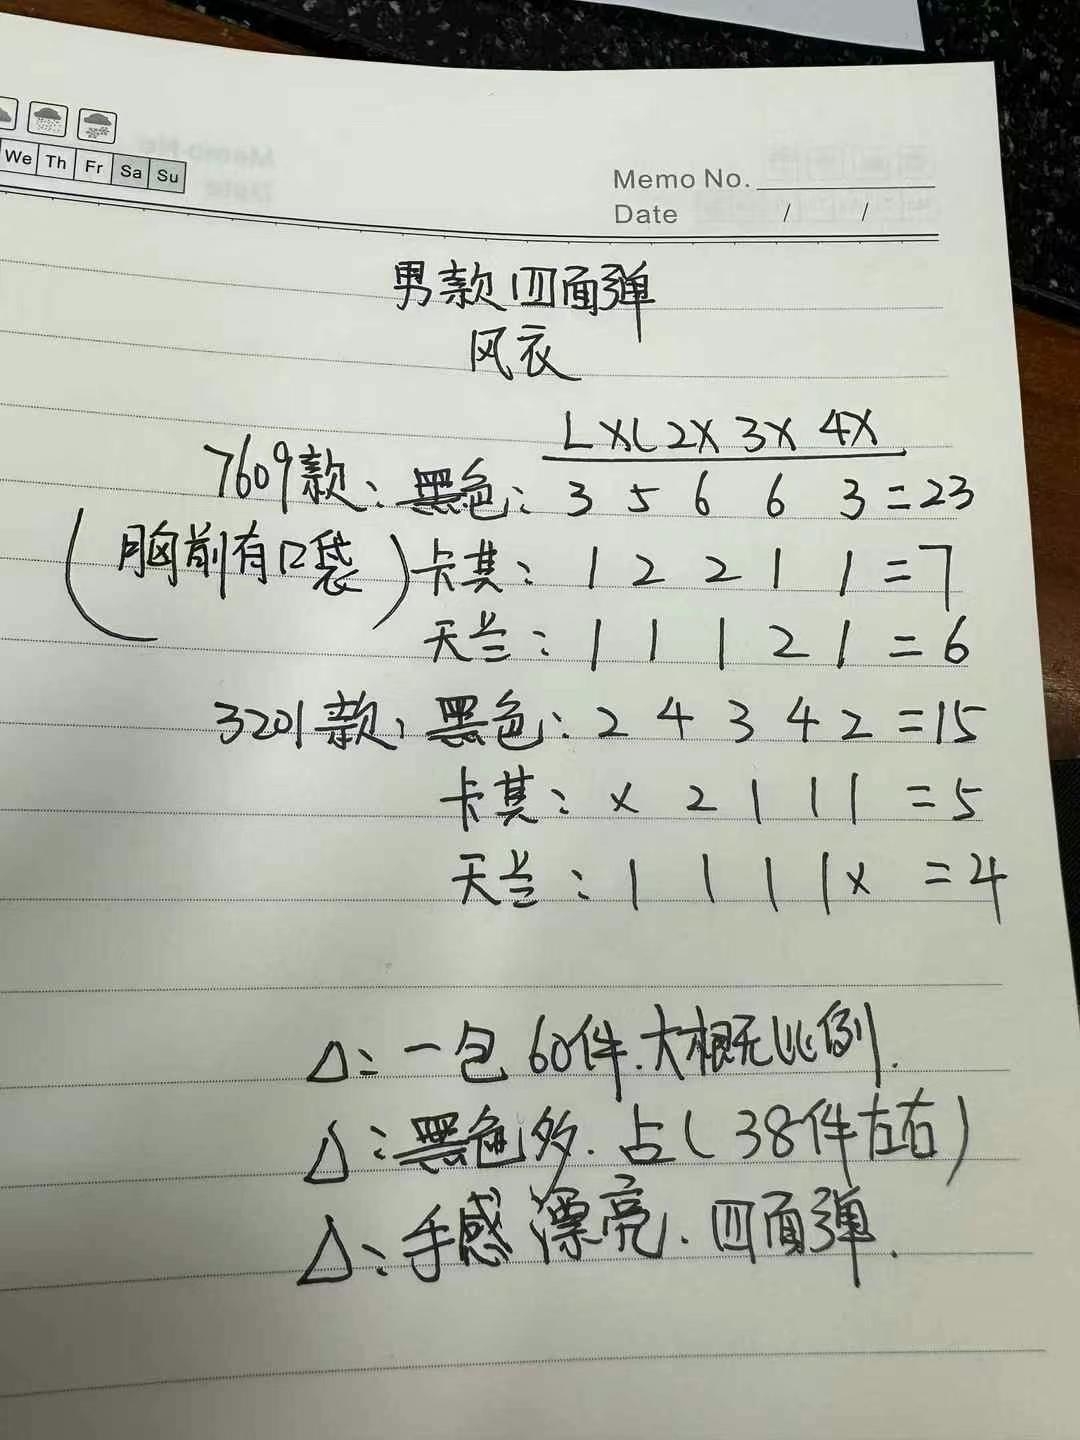 We Th Fr Sa Su
Memo No.
Date / /
男款四面弹
风衣
L XL 2X 3X 4X
7609款：黑色：3 5 6 6 3=23
（胸前有口袋）卡其：1 2 2 1 1=7
天兰：1 1 1 2 1=6
3201款：黑色：2 4 3 4 2=15
卡其：x 2 1 1 1=5
天兰：1 1 1 1 x=4
△：一包60件.大概比例.
△：黑色多.占(38件左右)
△：手感漂亮.四面弹.